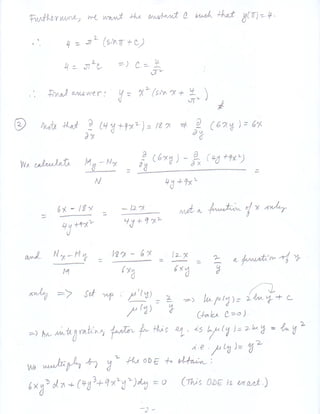 Furthermore, we want the constant C such that y(π)=4.
∴ 4 = π² (sin π + C)
4 = π² C => C = 4/π²
∴ Final answer: y = x² (sin x + 4/π²)
② Note that ∂/∂x (4y+9x²) = 18x ≠ ∂/∂y (6xy) = 6x
We calculate (My - Nx)/N = (∂/∂y (6xy) - ∂/∂x (4y+9x²))/(4y+9x²) =
= (6x - 18x)/(4y+9x²) = (-12x)/(4y+9x²) not a function of x only
and (Nx - My)/M = (18x - 6x)/(6xy) = 12x/(6xy) = 2/y a function of y
only => Set up: μ'(y)/μ(y) = 2/y => ln μ(y) = 2 ln y + C
(take C=0).
=> An integrating factor for this eq. is ln μ(y) = 2 ln y = ln y²
i.e. μ(y) = y²
We multiply by y² the ODE to obtain:
6xy³ dx + (4y³+9x²y²) dy = 0 (This ODE is exact.)
-2-